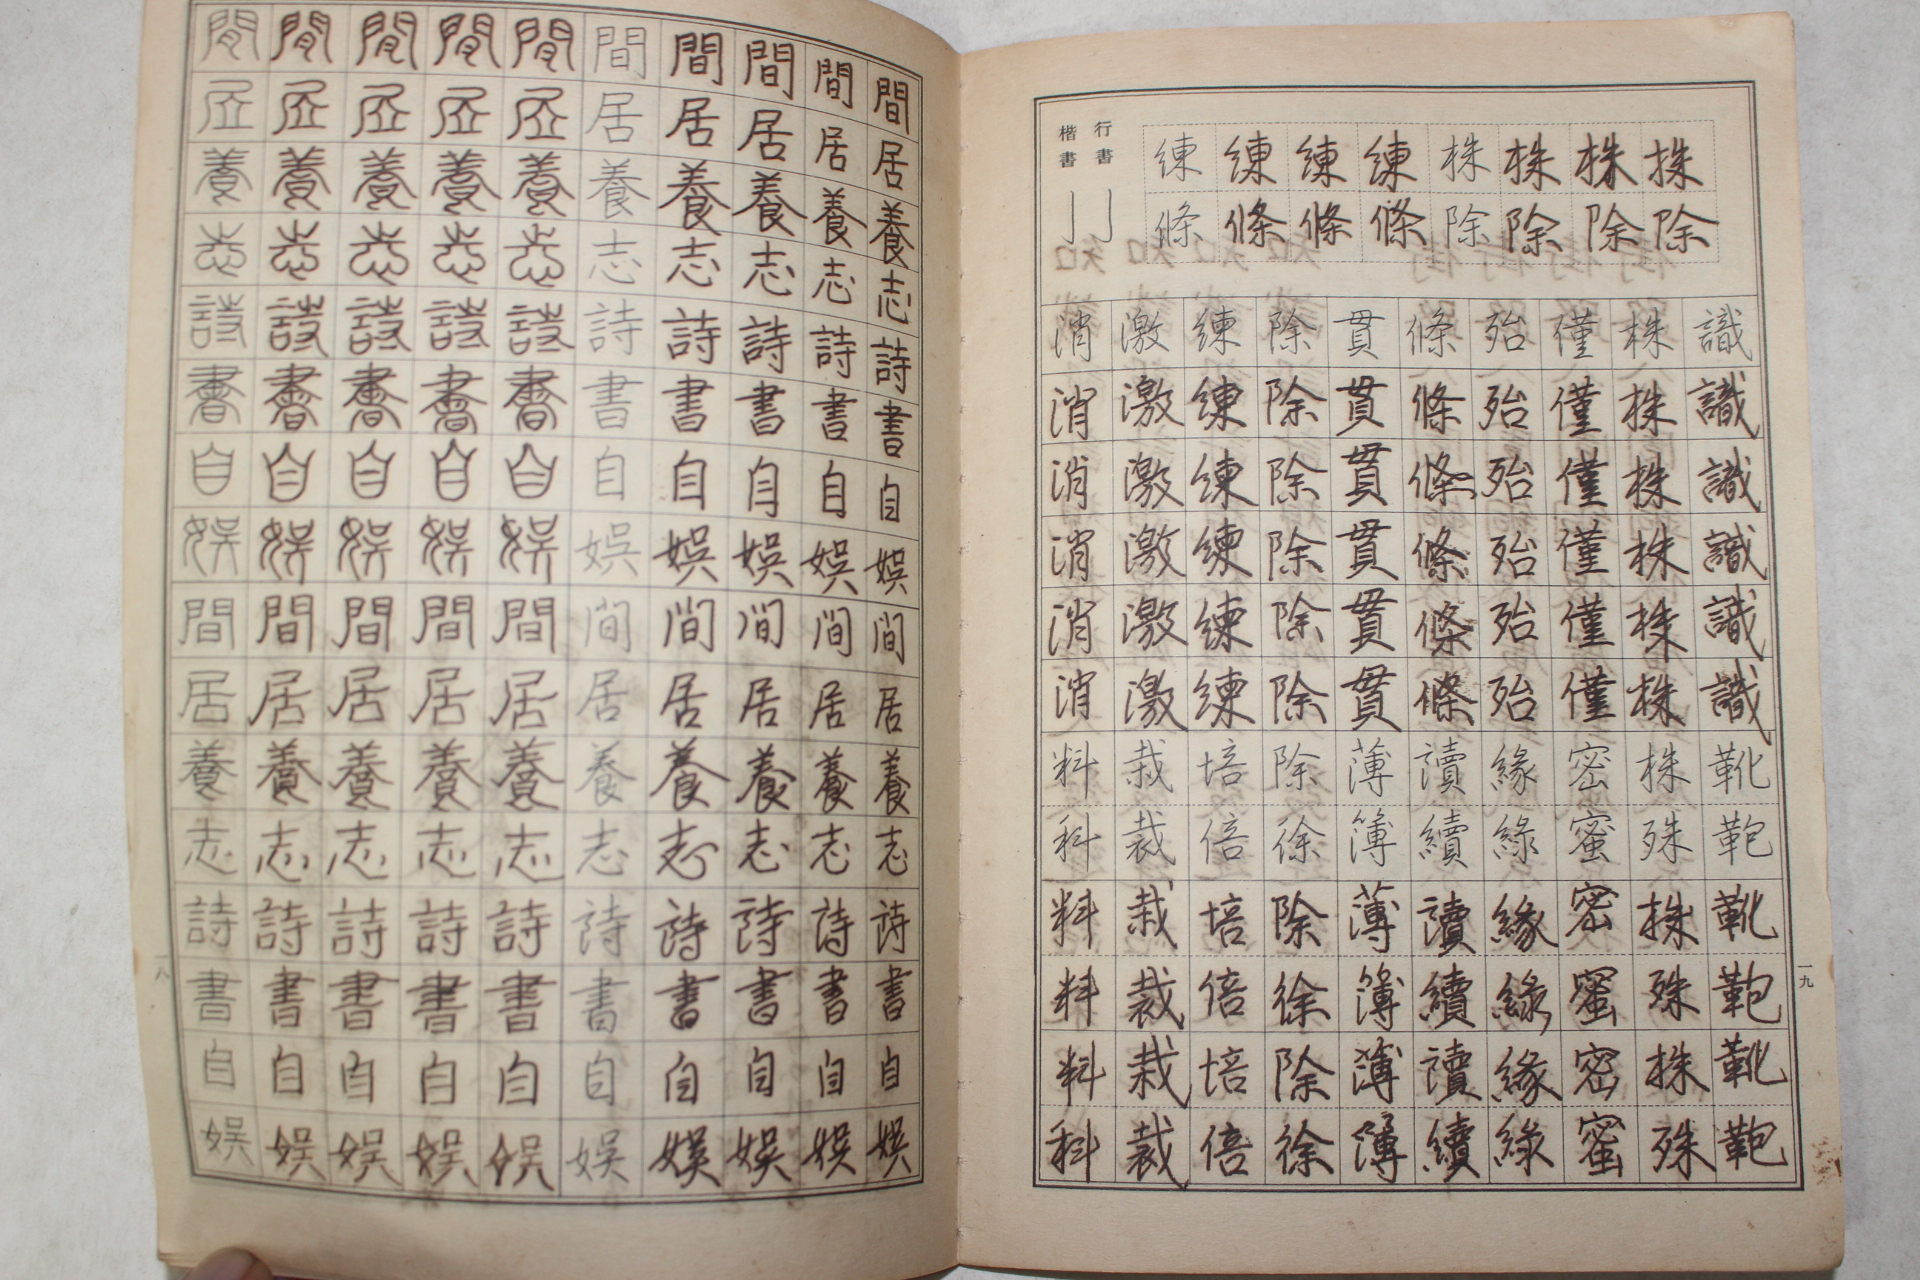 間居養志詩書自娛間居養志詩書自娛
間居養志詩書自娛間居養志詩書自娛
間居養志詩書自娛間居養志詩書自娛
間居養志詩書自娛間居養志詩書自娛
間居養志詩書自娛間居養志詩書自娛
間居養志詩書自娛間居養志詩書自娛
間居養志詩書自娛間居養志詩書自娛
間居養志詩書自娛間居養志詩書自娛
間居養志詩書自娛間居養志詩書自娛
間居養志詩書自娛間居養志詩書自娛
一八
楷書
行書
練練練練株株株株
條條條條除除除除
消激練除貫條殆僅株識
消激練除貫條殆僅株識
消激練除貫條殆僅株識
消激練除貫條殆僅株識
消激練除貫條殆僅株識
消激練除貫條殆僅株識
料栽培除薄讀緣密株靴
科裁倍徐簿續綠蜜殊鞄
料栽培除薄讀緣密株靴
料裁倍徐簿續綠蜜殊鞄
料栽培除薄讀緣密株靴
科裁倍徐簿續綠蜜殊鞄
一九